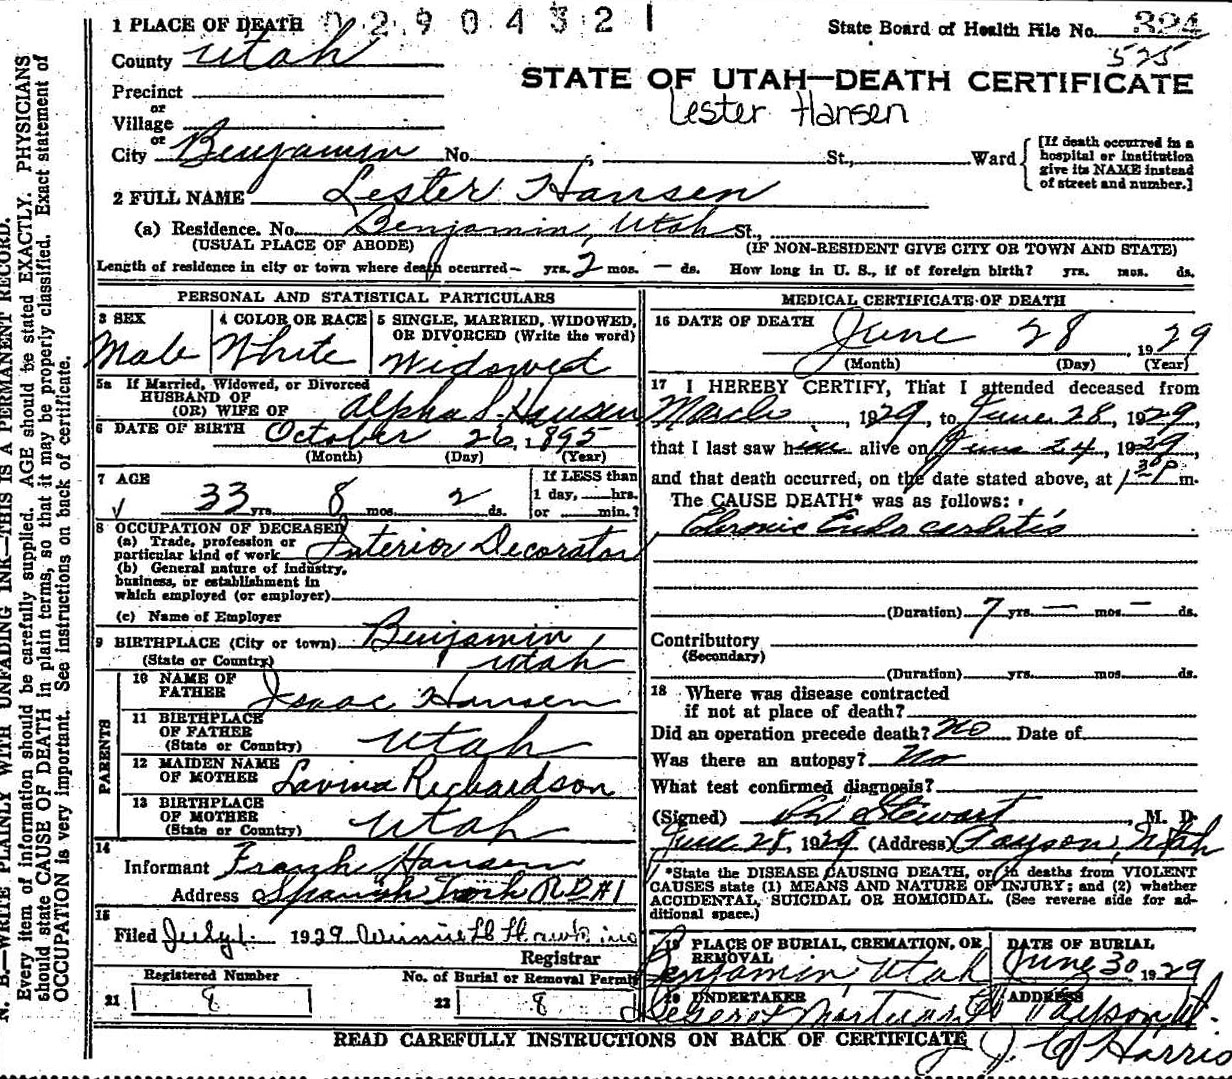 1 PLACE OF DEATH 02904321
State Board of Health File No. 324
525
County Utah
STATE OF UTAH—DEATH CERTIFICATE
Precinct
or
Village
Lester Hansen
or
City Benjamin No. , St., Ward
[If death occurred in a hospital or institution give its NAME instead of street and number.]
2 FULL NAME Lester Hansen
(a) Residence. No. Benjamin, Utah St.,
(USUAL PLACE OF ABODE) (IF NON-RESIDENT GIVE CITY OR TOWN AND STATE)
Length of residence in city or town where death occurred— yrs. 2 mos. — ds. How long in U. S., if of foreign birth? yrs. mos. ds.
PERSONAL AND STATISTICAL PARTICULARS
3 SEX
Male
4 COLOR OR RACE
White
5 SINGLE, MARRIED, WIDOWED,
OR DIVORCED (Write the word)
Widowed
5a If Married, Widowed, or Divorced
HUSBAND OF
(OR) WIFE OF Alpha S. Hansen
6 DATE OF BIRTH October 26, 1895
(Month) (Day) (Year)
7 AGE
33 yrs. 8 mos. 2 ds.
If LESS than
1 day, hrs.
or min.?
8 OCCUPATION OF DECEASED
(a) Trade, profession or
particular kind of work Interior Decorator
(b) General nature of industry,
business, or establishment in
which employed (or employer)
(c) Name of Employer
9 BIRTHPLACE (City or town) Benjamin
(State or Country) Utah
PARENTS
10 NAME OF
FATHER Isaac Hansen
11 BIRTHPLACE
OF FATHER
(State or Country) Utah
12 MAIDEN NAME
OF MOTHER Lavina Richardson
13 BIRTHPLACE
OF MOTHER
(State or Country) Utah
14
Informant Frank Hansen
Address Spanish Fork R.D.#1
15
Filed July 1. 1929 Winnie
Registrar
Registered Number
21 8
No. of Burial or Removal Permit
22 8
MEDICAL CERTIFICATE OF DEATH
16 DATE OF DEATH June 28 1929
(Month) (Day) (Year)
17 I HEREBY CERTIFY, That I attended deceased from
March , 1929, to June 28, 1929,
that I last saw him alive on June 24, 1929,
and that death occurred, on the date stated above, at 1 30 P m.
The CAUSE DEATH* was as follows:
Chronic Endocarditis
(Duration) 7 yrs. — mos. — ds.
Contributory
(Secondary)
(Duration) yrs. mos. ds.
18 Where was disease contracted
if not at place of death?
Did an operation precede death? No Date of
Was there an autopsy? No
What test confirmed diagnosis?
(Signed) Stewart , M. D.
June 28, 1929 (Address) Payson, Utah
*State the DISEASE CAUSING DEATH, or in deaths from VIOLENT
CAUSES state (1) MEANS AND NATURE OF INJURY; and (2) whether
ACCIDENTAL, SUICIDAL OR HOMICIDAL. (See reverse side for ad-
ditional space.)
19 PLACE OF BURIAL, CREMATION, OR
REMOVAL
Benjamin, Utah
DATE OF BURIAL
June 30 1929
20 UNDERTAKER
Deseret Mortuary
ADDRESS
Payson, Ut.
READ CAREFULLY INSTRUCTIONS ON BACK OF CERTIFICATE
Harris
N. B.—WRITE PLAINLY WITH UNFADING INK—THIS IS A PERMANENT RECORD.
Every item of information should be carefully supplied. AGE should be stated EXACTLY. PHYSICIANS
should state CAUSE OF DEATH in plain terms, so that it may be properly classified. Exact statement of
OCCUPATION is very important. See instructions on back of certificate.